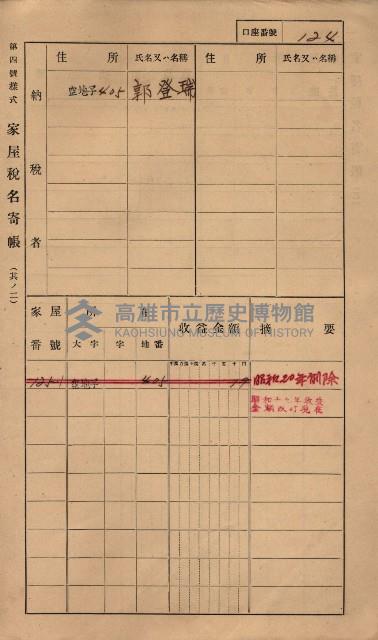 口座番號 124
第四號樣式 家屋稅名寄帳 (其ノ二)
納稅者
住所 氏名又ハ名稱 住所 氏名又ハ名稱
塩埕子405 郭登瑞
家屋番號 家屋所在 收益金額 摘要
大字 字 地番
高雄市立歷史博物館
KAOHSIUNG MUSEUM OF HISTORY
塩埕子 405 19 昭和20年削除
昭和十七年改投